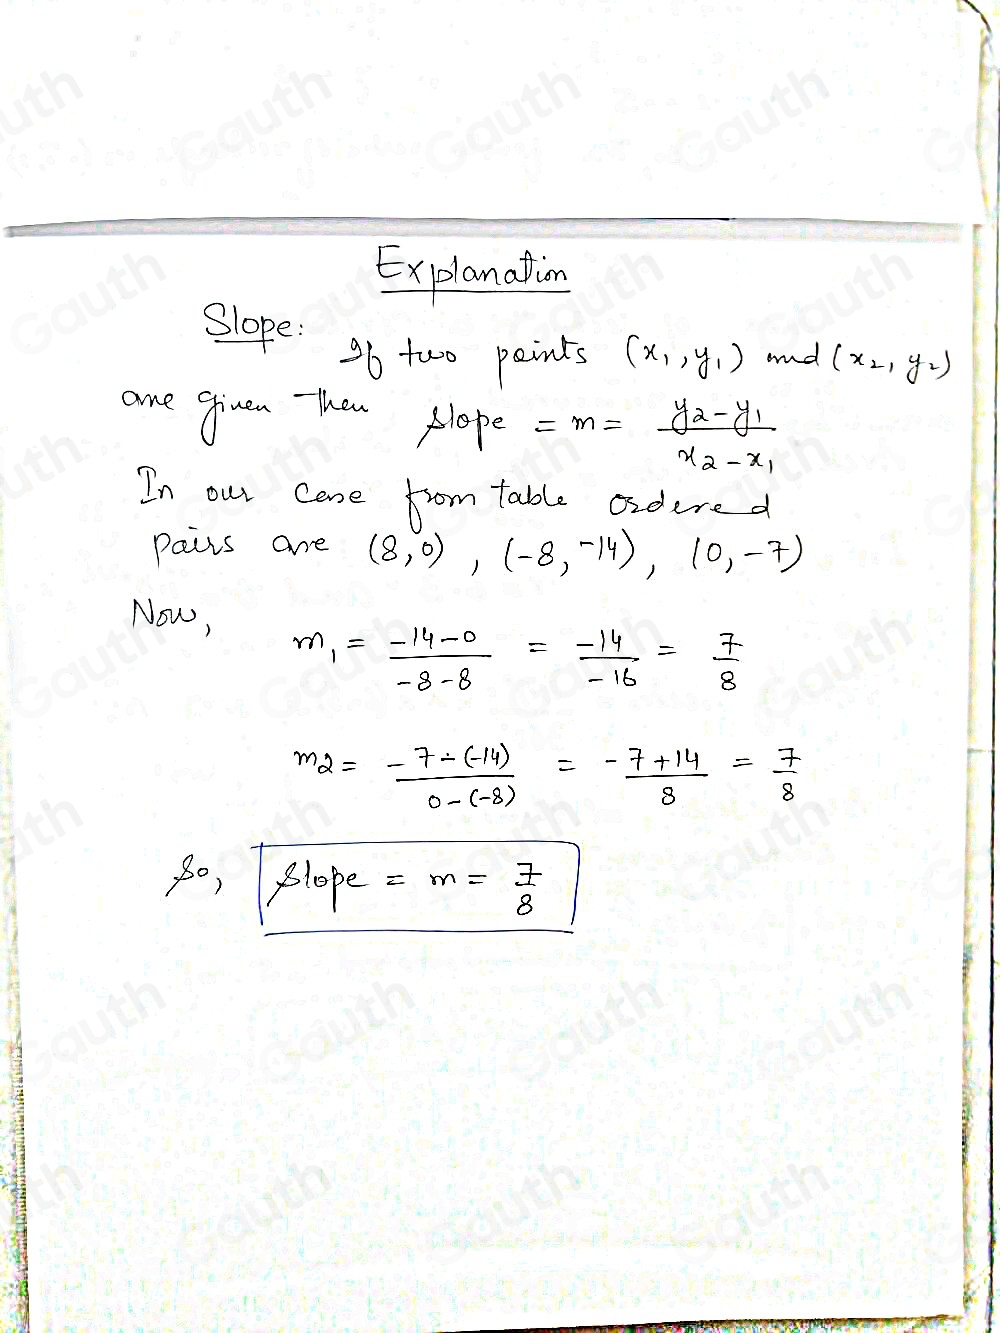 Explanation
Slope:
If two points (x₁, y₁) and (x₂, y₂)
are given then slope = m = (y₂ - y₁)/(x₂ - x₁)
In our case from table ordered
pairs are (8,0), (-8, -14), (0, -7)
Now,
m₁ = (-14 - 0)/(-8 - 8) = -14/-16 = 7/8
m₂ = (-7 - (-14))/(0 - (-8)) = (-7 + 14)/8 = 7/8
So, slope = m = 7/8
Gauth